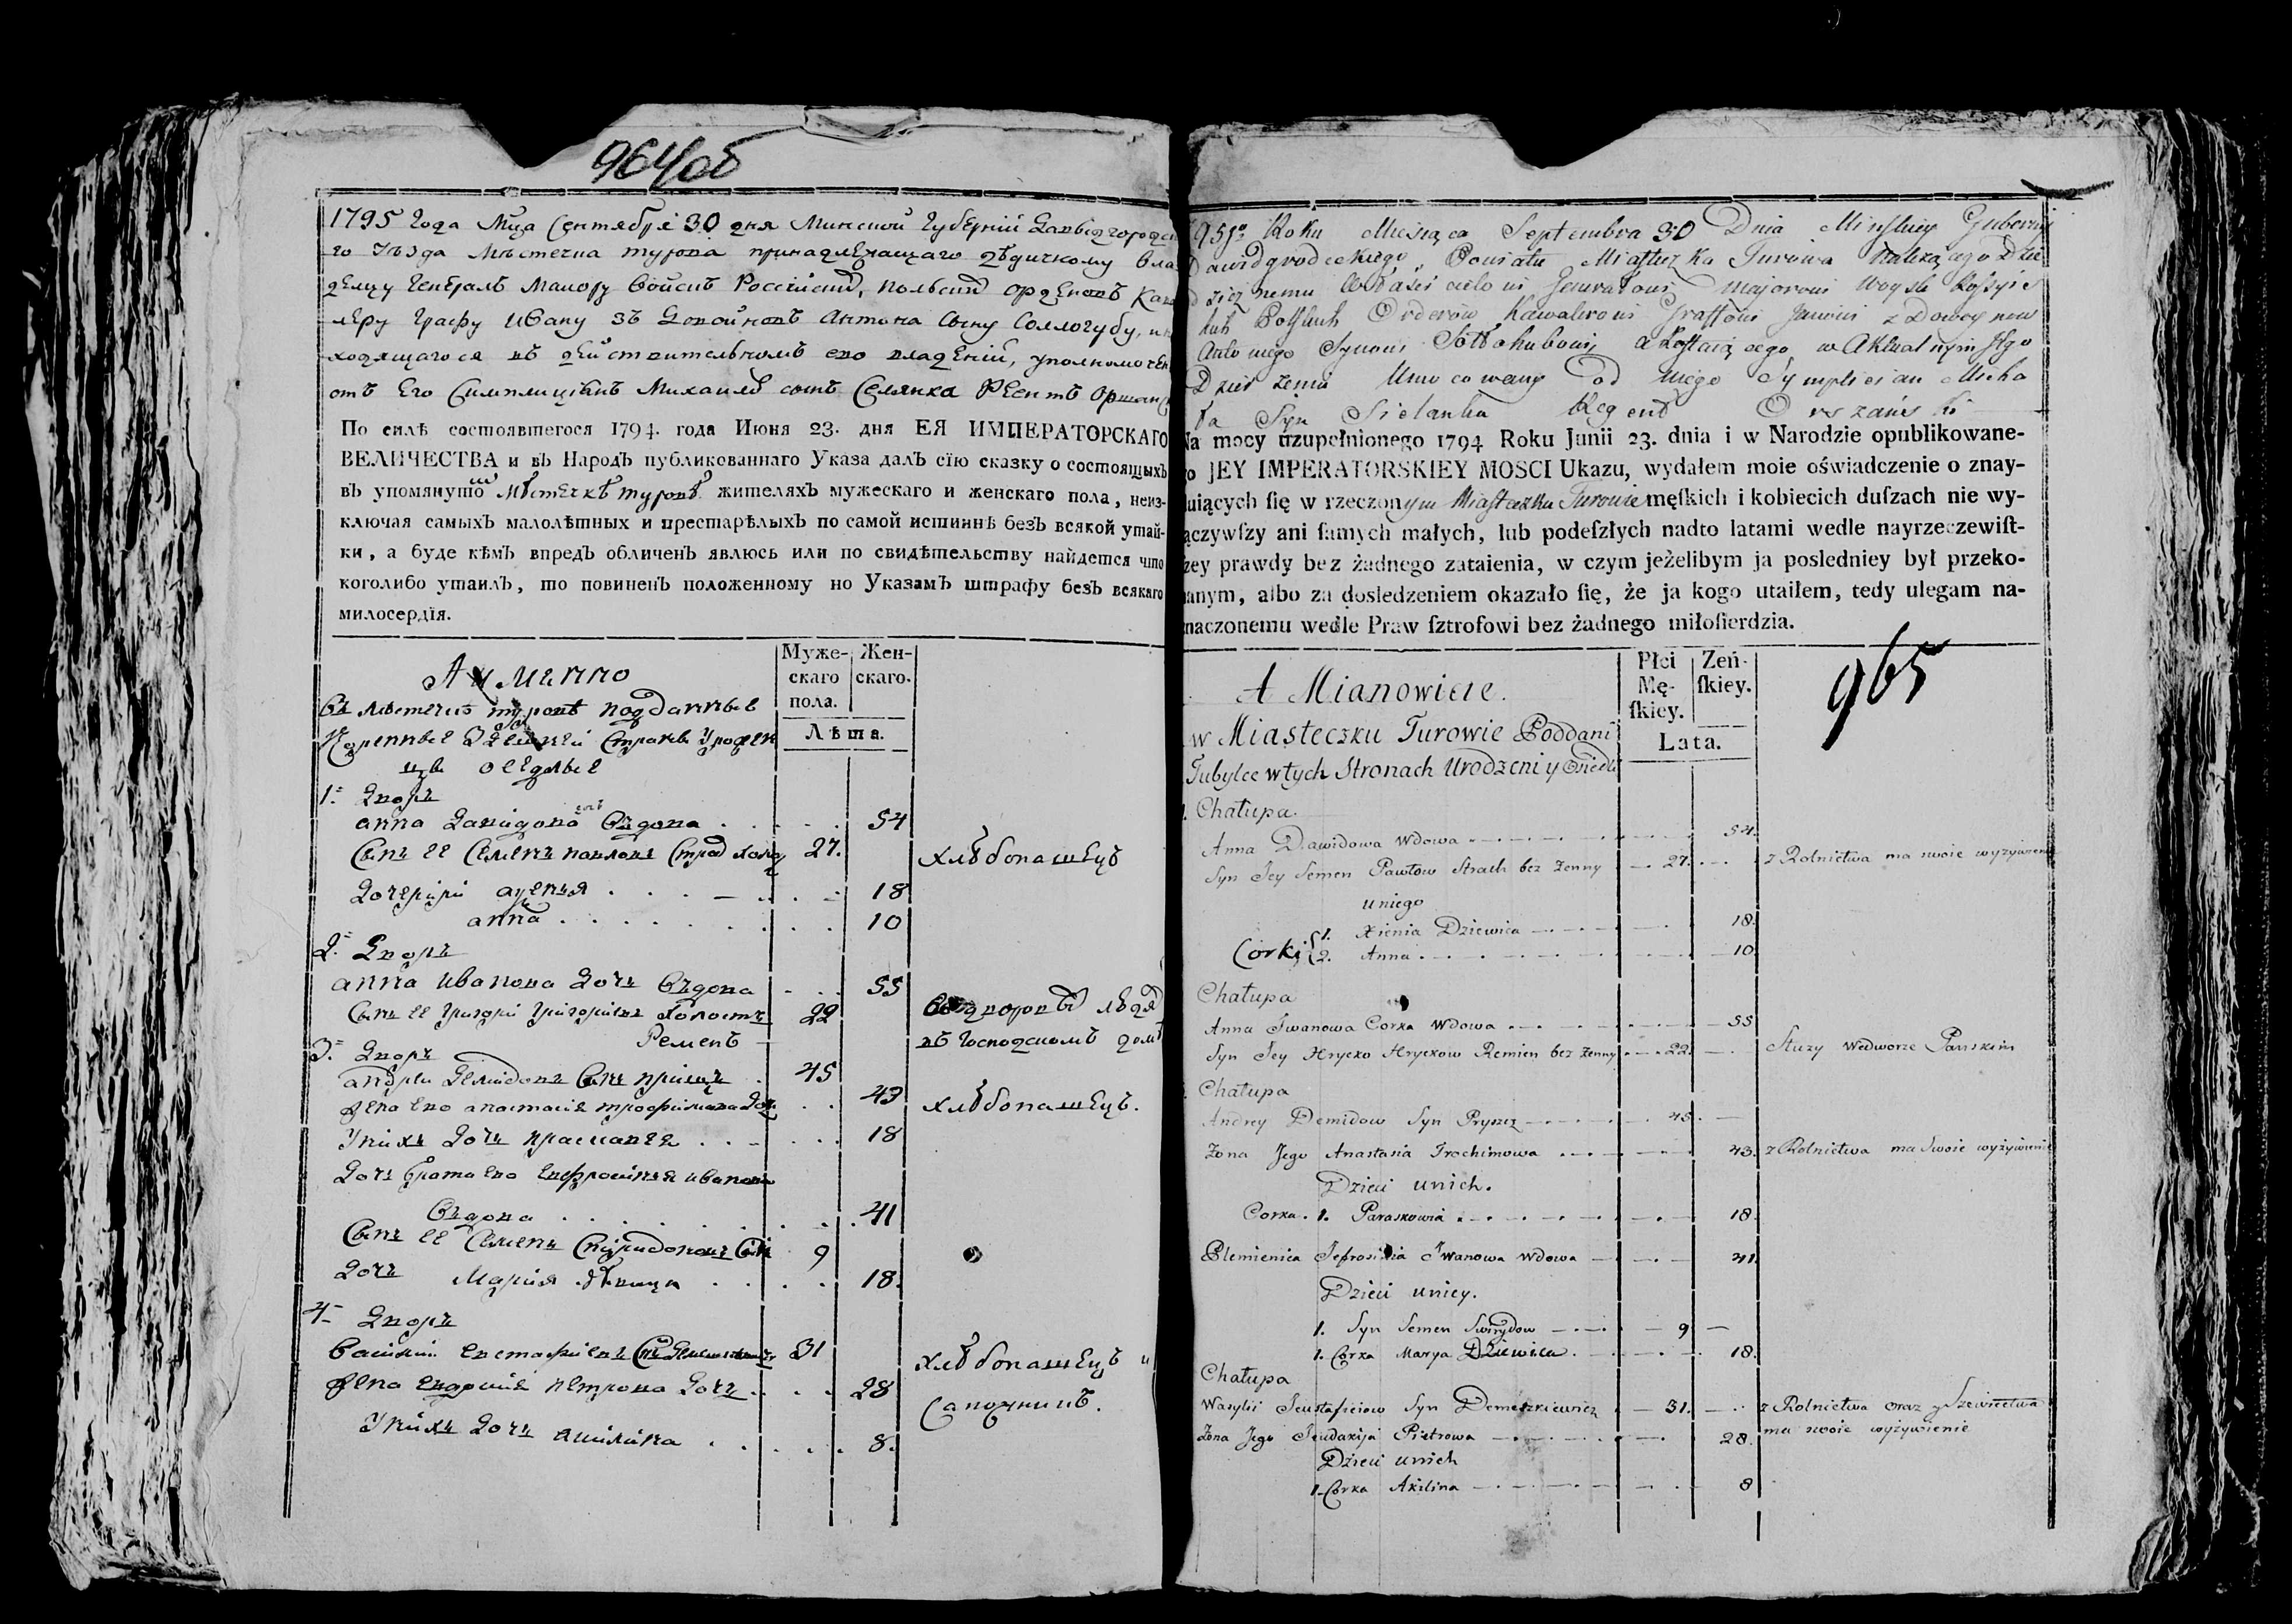 964об
1795 года Мца Сентября 30 дня Минской Губернїи Давыдгородска
го Уѣзда Мѣстечка турова принадлежащаго дѣдичному вла
дѣлцу Генералъ Маиору Войскъ Россїйскихъ, польскихъ орденовъ Кава
леру Графу Ивану зъ Довойновъ Антона Сыну Соллогубу, и на
ходящагося въ дѣйствительномъ его владѣнїи, уполномочен
отъ Его Симплицїянъ Михаила сынъ Селянка Реентъ Оршанс
По силѣ состоявшегося 1794. года Июня 23. дня ЕЯ ИМПЕРАТОРСКАГО
ВЕЛИЧЕСТВА и въ Народъ публикованнаго Указа далъ сїю сказку о состоящыхъ
въ упомянуто мъ Мѣстечкѣ туровѣ жителяхъ мужескаго и женскаго пола, неиз-
ключая самыхъ малолѣтныхъ и престарѣлыхъ по самой истиннѣ безъ всякой утай-
ки, а буде кѣмъ впредъ обличенъ явлюсь или по свидѣтельству найдется что
коголибо утаилъ, то повиненъ положенному по Указамъ штрафу безъ всякаго
милосердїя.
А имянно
Муже-
скаго
пола.
Жен-
скаго.
Лѣта.
Въ мѣстечкѣ туровѣ подданные
Коренные здешней страны урожен
цы оседлые
1. Дворъ
анна давидова вдова 54
Сынъ ее Семенъ павловъ Страх холо 27. хлѣбопашецъ
Дочери 18
анна 10
2. Дворъ
анна иванова дочь вдова 55
Сынъ ее григорий григориевъ холостъ 22 въ дворовыхъ людях
Ременъ въ господскомъ домѣ
3. Дворъ
андреи демидовъ сынъ прищъ 45
жена его анастасия трофимова доч 43 хлѣбопашецъ.
У нихъ дочь прасковея 18
дочь брата его ефросиния иванова
вдова 41
Сынъ ее Семенъ Спиридоновъ сын 9
дочь Мария дѣвица 18.
4 Дворъ
василий евстафиевъ сн 31 хлѣбопашецъ и
жена евдокия петрова дочь 28 сапожникъ.
У нихъ дочь акилина 8.
95go Roku Miesiąca Septembra 30 Dnia Minskiey Gubernij
Dawidgrodeckiego Powiatu Miasteczka Turowa należącego Dzie
dzicznemu Właścicielowi Generałowi Majorowi Woysk Rossyis
kich Polskich Orderów Kawalerowi Graffowi Janowi z Dowoynow
Antoniego Synowi Sołłohubowi a zostaiącego w Aktualnym Jego
Dzierżeniu Umocowany od niego Symplician Micha
ła Syn Sielanka Regent Orszański
Na mocy uzupełnionego 1794 Roku Junii 23. dnia i w Narodzie opublikowane-
go JEY IMPERATORSKIEY MOSCI Ukazu, wydałem moie oświadczenie o znay-
duiących ſię w rzeczonym Miasteczku Turowie męſkich i kobiecich duſzach nie wy-
łączywſzy ani ſamych małych, lub podeſzłych nadto latami wedle nayrzeczewiſt-
ſzey prawdy bez żadnego zataienia, w czym jeżelibym ja posledniey był przeko-
nanym, albo za dosledzeniem okazało ſię, że ja kogo utaiłem, tedy ulegam na-
znaczonemu wedle Praw ſztrofowi bez żadnego miłoſierdzia.
A Mianowicie.
Płci
Mę-
ſkiey.
Zeń-
ſkiey.
Lata.
965
w Miasteczku Turowie Poddani
Tubylce w tych Stronach Urodzeni y Osiedli
Chałupa.
Anna Dawidowa Wdowa 54.
Syn Jey Semen Pawłow Strach bez żenny 27. z Rolnictwa ma swoie wyżywienie
u niego
Corki 1. Xienia Dziewica 18.
2. Anna 10.
Chałupa
Anna Iwanowa Corka Wdowa 55
Syn Jey Hrycko Hryckow Remien bez żenny 22. Służy we dworze Pańskim
Chałupa
Andrey Demidow Syn Pryszcz 45.
Zona Jego Anastasia Trochimowa 43. z Rolnictwa ma swoie wyżywienie
Dzieci u nich.
Corka. 1. Paraskowia 18.
Plemienica Jefrosinia Iwanowa Wdowa 41.
Dzieci u niey.
1. Syn Semen Swirydow 9
1. Corka Marya Dziewica 18.
Chałupa
Wasylii Jeustafieiow Syn Demeszkiewicz 31. z Rolnictwa oraz y Szewiectwa
Zona Jego Jeudakija Pietrowa 28. ma swoie wyżywienie
Dzieci u nich
1. Corka Akilina 8